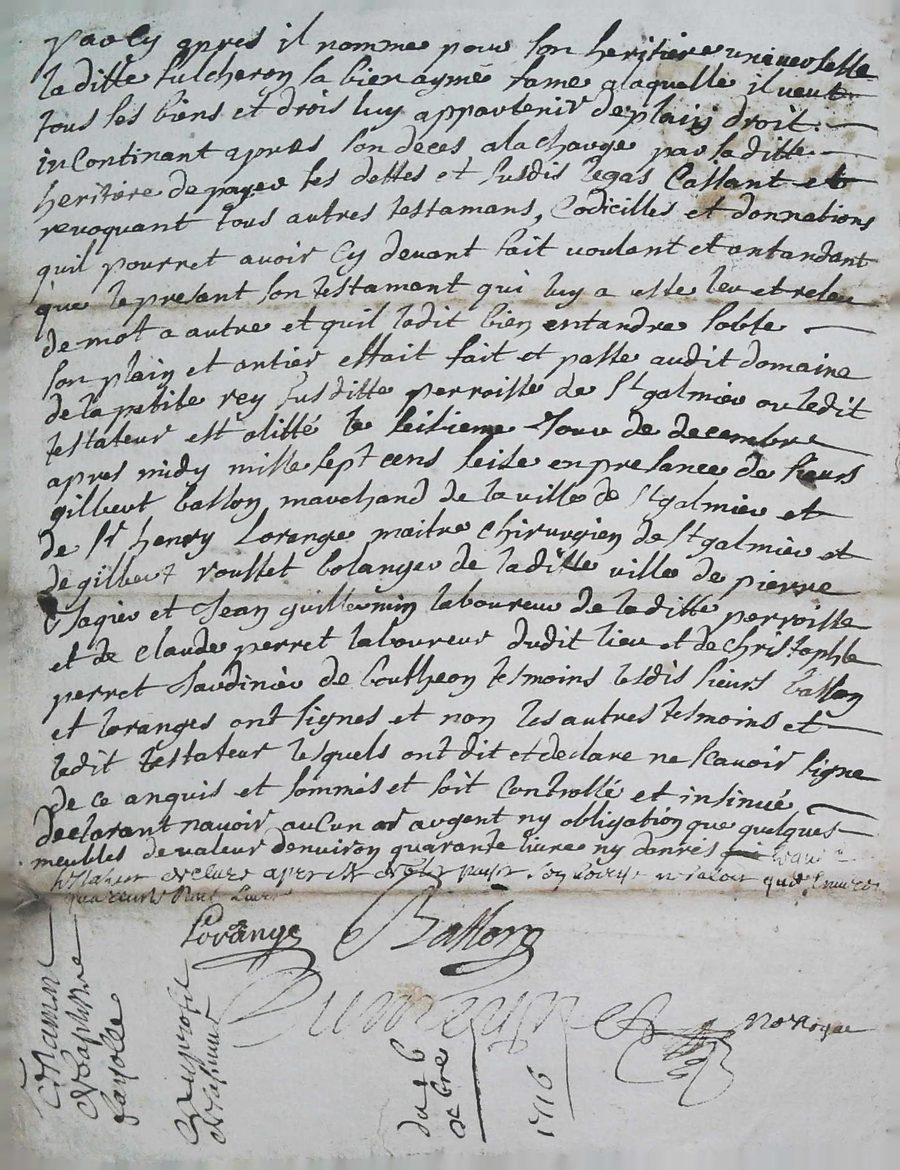 y avoir cy apres il nomme pour son heritiere universelle
laditte fulcheron sa bien aymé fame a laquelle il veut
tous ses biens et drois luy appartenir de plain droit
incontinant apres son deces a la charge par laditte
heritiere de payer ses dettes et susdis legas Cassant et
revoquant tous autres testamans, Codicilles et donnations
quil pourret avoir Cy devant fait voulant et antandant
que le presant son testament qui luy a esté leu et releu
de mot a autre et quil ladit bien entandre sobte
son plain et antier effait fait et passe audit domaine
de la petite rey susditte perroisse de St galmier ou ledit
testateur est alitté le seisieme Jour de decembre
apres midy mille sept cens seise en presance de sieurs
gilbert basson marchand de la ville de St galmier et
de Sr henry Lorange maitre chirurgien de St galmier et
de gilbert rousset bolanger de laditte ville de pierre
sagier et Jean guillermin laboureur de laditte perroisse
et de claude perret laboureur dudit lieu et de christophle
perret Jardinier de boutheon tesmoins lesdis sieurs basson
et loranges ont signes et non les autres tesmoins et
ledit testateur lesquels ont dit et declare ne scavoir signe
de ce anquis et sommés et soit Controllé et insinué
declarant navoir aucun or argent ny obligation que quelques
meubles de valeur denviron quarante livre ny danrés
testateur declare
Lorange Basson
no Royal
du 16
xbre
1716